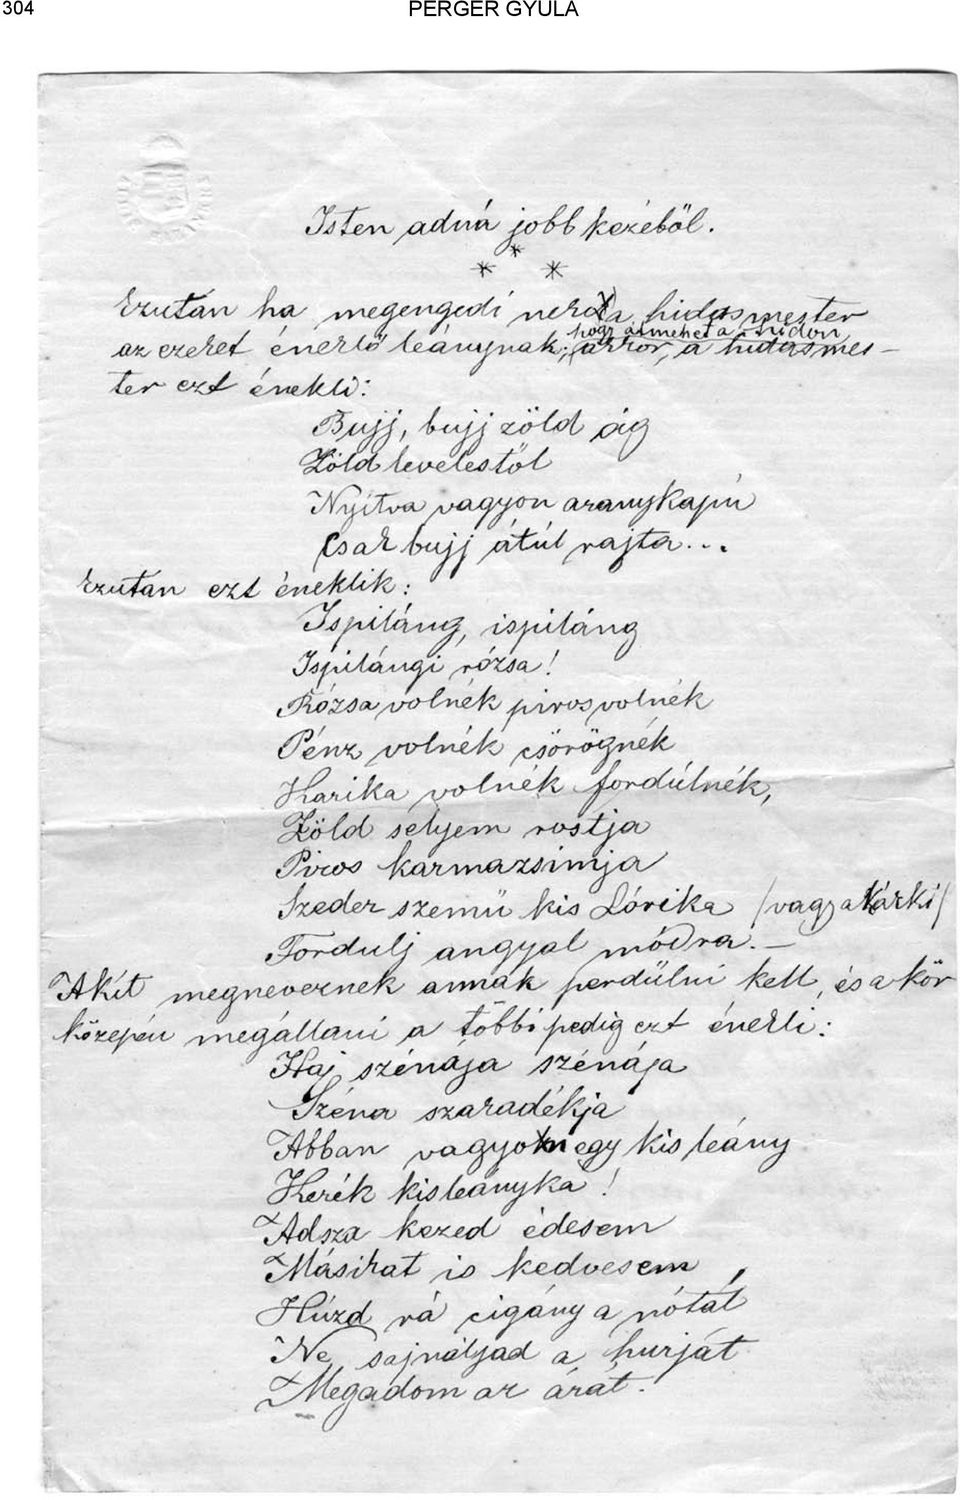 304 PERGER GYULA
Isten adná jobb kezéből.
* * *
Ezután ha megengedi neki a hidasmester
az ezeket éneklő leánynak, hogy átmehet a hidon, akkor, a hidasmes-
ter ezt énekli:
Bujj, bujj zöld ág
Zöld levelestöl
Nyitva vagyon aranykapú
Csak bujj átúl rajta...
Ezután ezt éneklik:
Ispiláng, ispiláng
Ispilángi rózsa!
Rózsa volnék piros volnék
Pénz volnék csörögnék
Karika volnék fordúlnék,
Zöld selyem rostja
Piros karmazsimja
Szeder szemü kis Lórika /vagy akárki/
Fordulj angyal módra.—
Akit megneveznek annak perdülni kell, és a kör
közepén megállani a többi pedig ezt énekli:
Haj szénája szénája
Széna szakadékja
Abban vagyon egy kis leány
Kerék kisleányka!
Adsza kezed édesem
Másikat is kedvesem,
Húzd rá cigány a nótát
Ne sajnáljad a hurját
Megadom az árát.